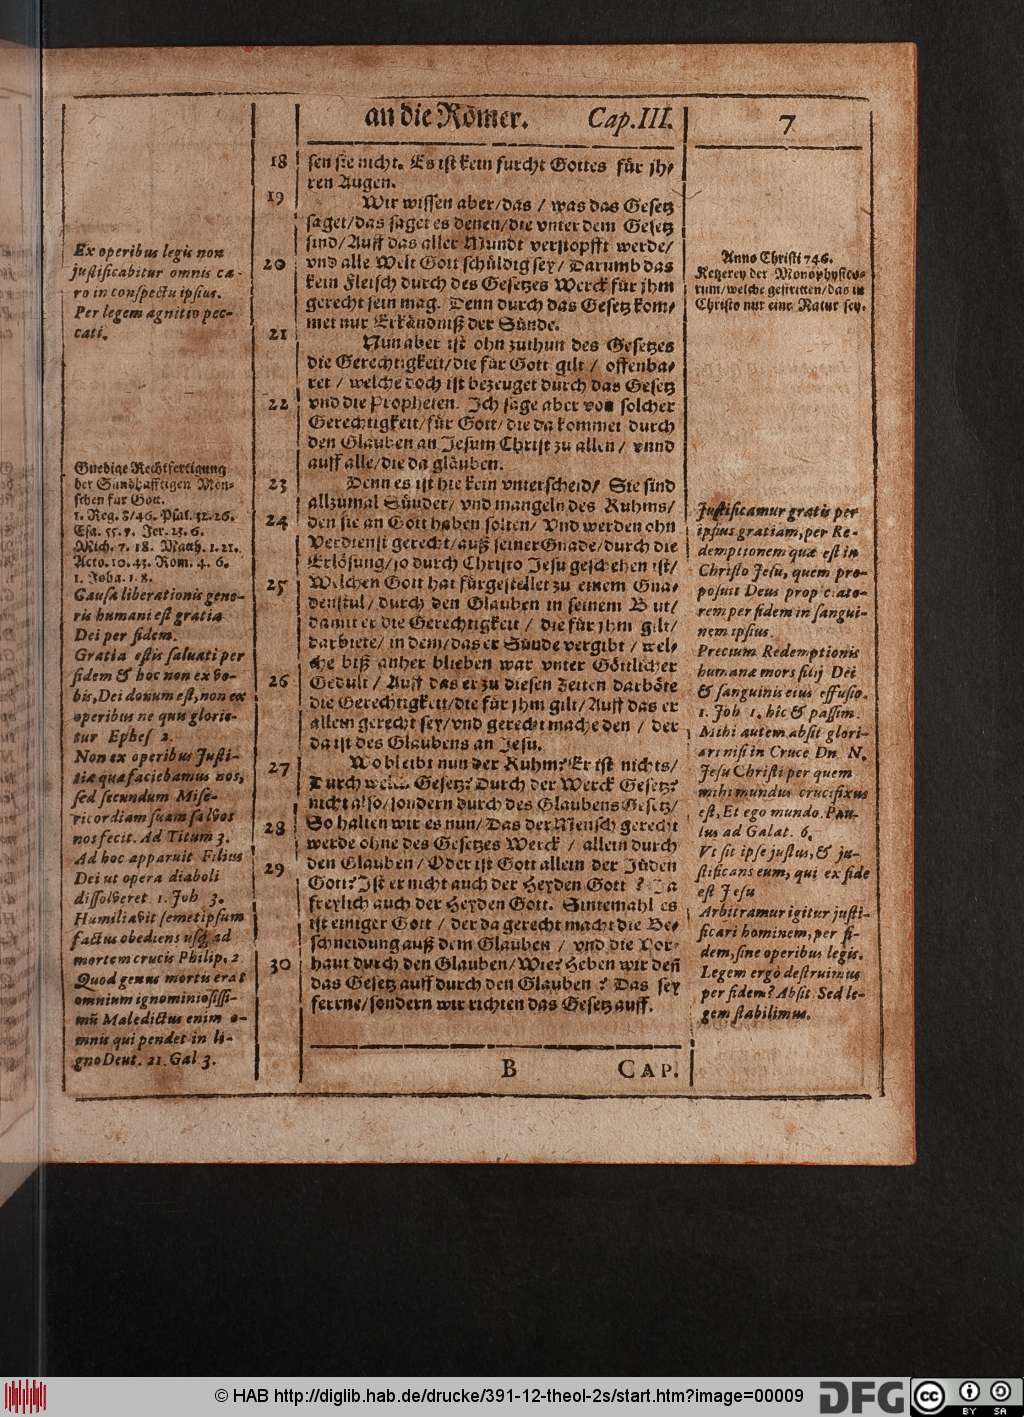 an die Römer. Cap. III. 7
Ex operibus legis non
justificabitur omnis ca-
ro in conspectu ipsius.
Per legem agnitio pec-
cati.
Gnedige Rechtfertigung
der Sündhafftigen Men-
schen für Gott.
1. Reg. 8/46. Psal. 32. 26.
Esa. 55. 7. Jer. 23. 6.
Mich. 7. 18. Matth. 1. 21.
Acto. 10. 43. Rom. 4. 6.
1. Joha. 1. 8.
Causa liberationis gene-
ris humani est gratia
Dei per fidem.
Gratia estis salvati per
fidem & hoc non ex vo-
bis, Dei donum est, non ex
operibus ne quis glorie-
tur Ephes 2.
Non ex operibus Justi-
tiæ quæ faciebamus nos,
sed secundum Mise-
ricordiam suam salvos
nos fecit. Ad Titum 3.
Ad hoc apparuit Filius
Dei ut opera diaboli
dissolveret 1. Joh 3.
Humiliavit semetipsum
factus obediens usq; ad
mortem crucis Philip. 2
Quod genus mortis erat
omnium ignominiosissi-
mũ Maledictus enim o-
mnis qui pendet in li-
gno Deut. 21. Gal 3.
18 sen sie nicht. Es ist kein furcht Gottes für jh-
ren Augen.
19 Wir wissen aber/das / was das Gesetz
saget/das saget es denen/die vnter dem Gesetz
sind/Auff das aller Mundt verstopfft werde/
20 vnd alle Welt Gott schüldig sey/Darumb das
kein Fleisch durch des Gesetzes Werck für jhm
gerecht sein mag. Denn durch das Gesetz kom-
met nur Erkändniß der Sünde.
21 Nun aber ist ohn zuthun des Gesetzes
die Gerechtigkeit/die für Gott gilt / offenba-
ret / welche doch ist bezeuget durch das Gesetz
22 vnd die Propheten. Ich sage aber von solcher
Gerechtigkeit/für Gott/die da kommet durch
den Glauben an Jesum Christ zu allen / vnnd
auff alle/die da gläuben.
23 Denn es ist hie kein vnterscheid/ Sie sind
allzumal Sünder/ vnd mangeln des Ruhms/
24 den sie an Gott haben solten/ Vnd werden ohn
Verdienst gerecht/auß seiner Gnade/durch die
Erlösung/so durch Christo Jesu geschehen ist/
25 Welchen Gott hat fürgestellet zu einem Gna-
denstul/ durch den Glauben in seinem Blut/
damit er die Gerechtigkeit / die für jhm gilt/
darbiete/ in dem/das er Sünde vergibt / wel-
che biß anher blieben war vnter Göttlicher
26 Gedult / Auff das er zu diesen Zeiten darböte
die Gerechtigkeit/die für jhm gilt/Auff das er
allein gerecht sey/vnd gerecht mache den / der
da ist des Glaubens an Jesu.
27 Wo bleibt nun der Ruhm? Er ist nichts/
Durch Gesetz? Durch der Werck Gesetz?
nicht also/sondern durch des Glaubens Gesetz/
28 So halten wir es nun/Das der Mensch gerecht
werde ohne des Gesetzes Werck / allein durch
29 den Glauben/ Oder ist Gott allein der Jüden
Gott? Ist er nicht auch der Heyden Gott ? Ja
freylich auch der Heyden Gott. Sintemahl es
ist einiger Gott / der da gerecht macht die Be-
schneidung auß dem Glauben / vnd die Vor-
30 haut durch den Glauben/Wie? Heben wir deñ
das Gesetz auff durch den Glauben ? Das sey
ferrne/sondern wir richten das Gesetz auff.
Anno Christi 746.
Ketzerey der Monophysito-
rum/welche gestritten/das in
Christo nur eine Natur sey.
Justificamur gratis per
ipsius gratiam, per Re-
demptionem quæ est in
Christo Jesu, quem pro-
posuit Deus propitiato-
rem per fidem in sangui-
nem ipsius.
Precium Redemptionis
humanæ mors filij Dei
& sanguinis eius effusio.
1. Joh 1. hic & passim.
Mihi autem absit glori-
ari nisi in Cruce Dn. N.
Jesu Christi per quem
mihi mundus crucifixus
est, Et ego mundo. Pau-
lus ad Galat. 6.
Vt sit ipse justus, & ju-
stificans eum, qui ex fide
est Jesu
Arbitramur igitur justi-
ficari hominem, per fi-
dem, sine operibus legis.
Legem ergò destruimus
per fidem? Absit. Sed le-
gem stabilimus.
B CAP.
© HAB http://diglib.hab.de/drucke/391-12-theol-2s/start.htm?image=00009
DFG
cc BY SA